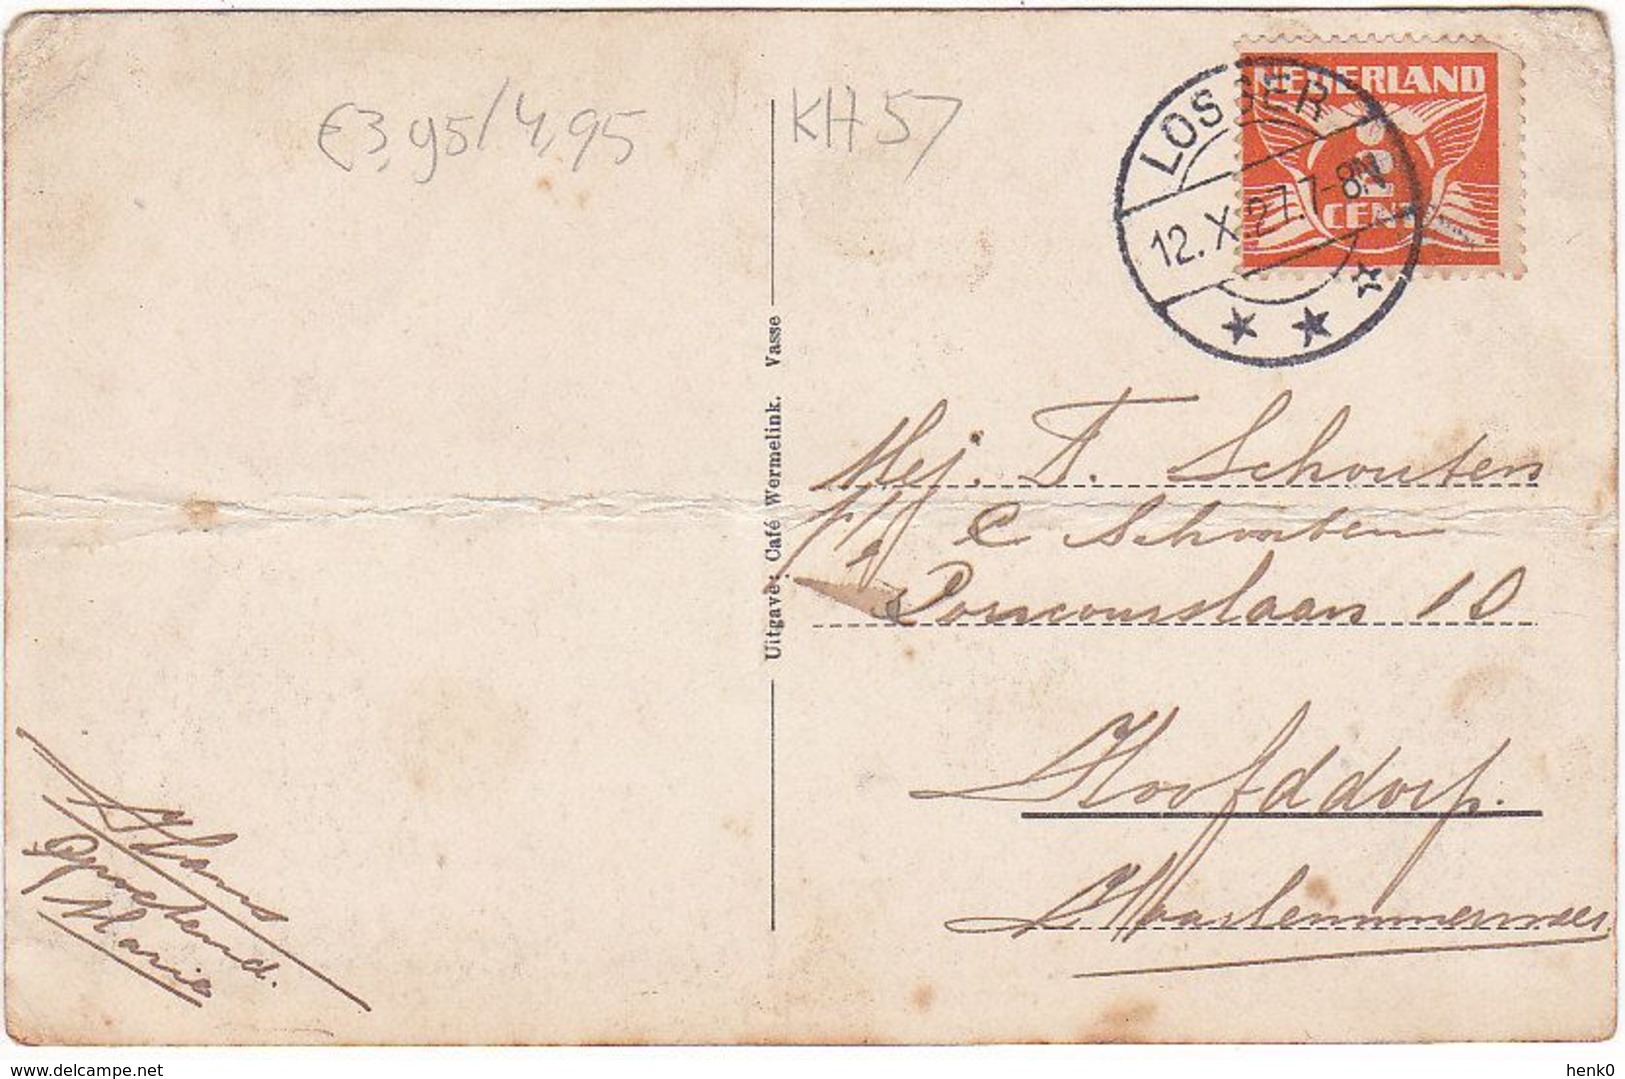 €3,95/4,95
KH57
NEDERLAND
2
CENT
LOSSER
12.X.27.7-8.N
Uitgave: Café Wermelink. Vasse
Mej. T. Schouten
p/a C Schouten
10
Hoofddorp.
Haarlemmermeer
Hans
Groetend.
Marie
www.delcampe.net
henk0